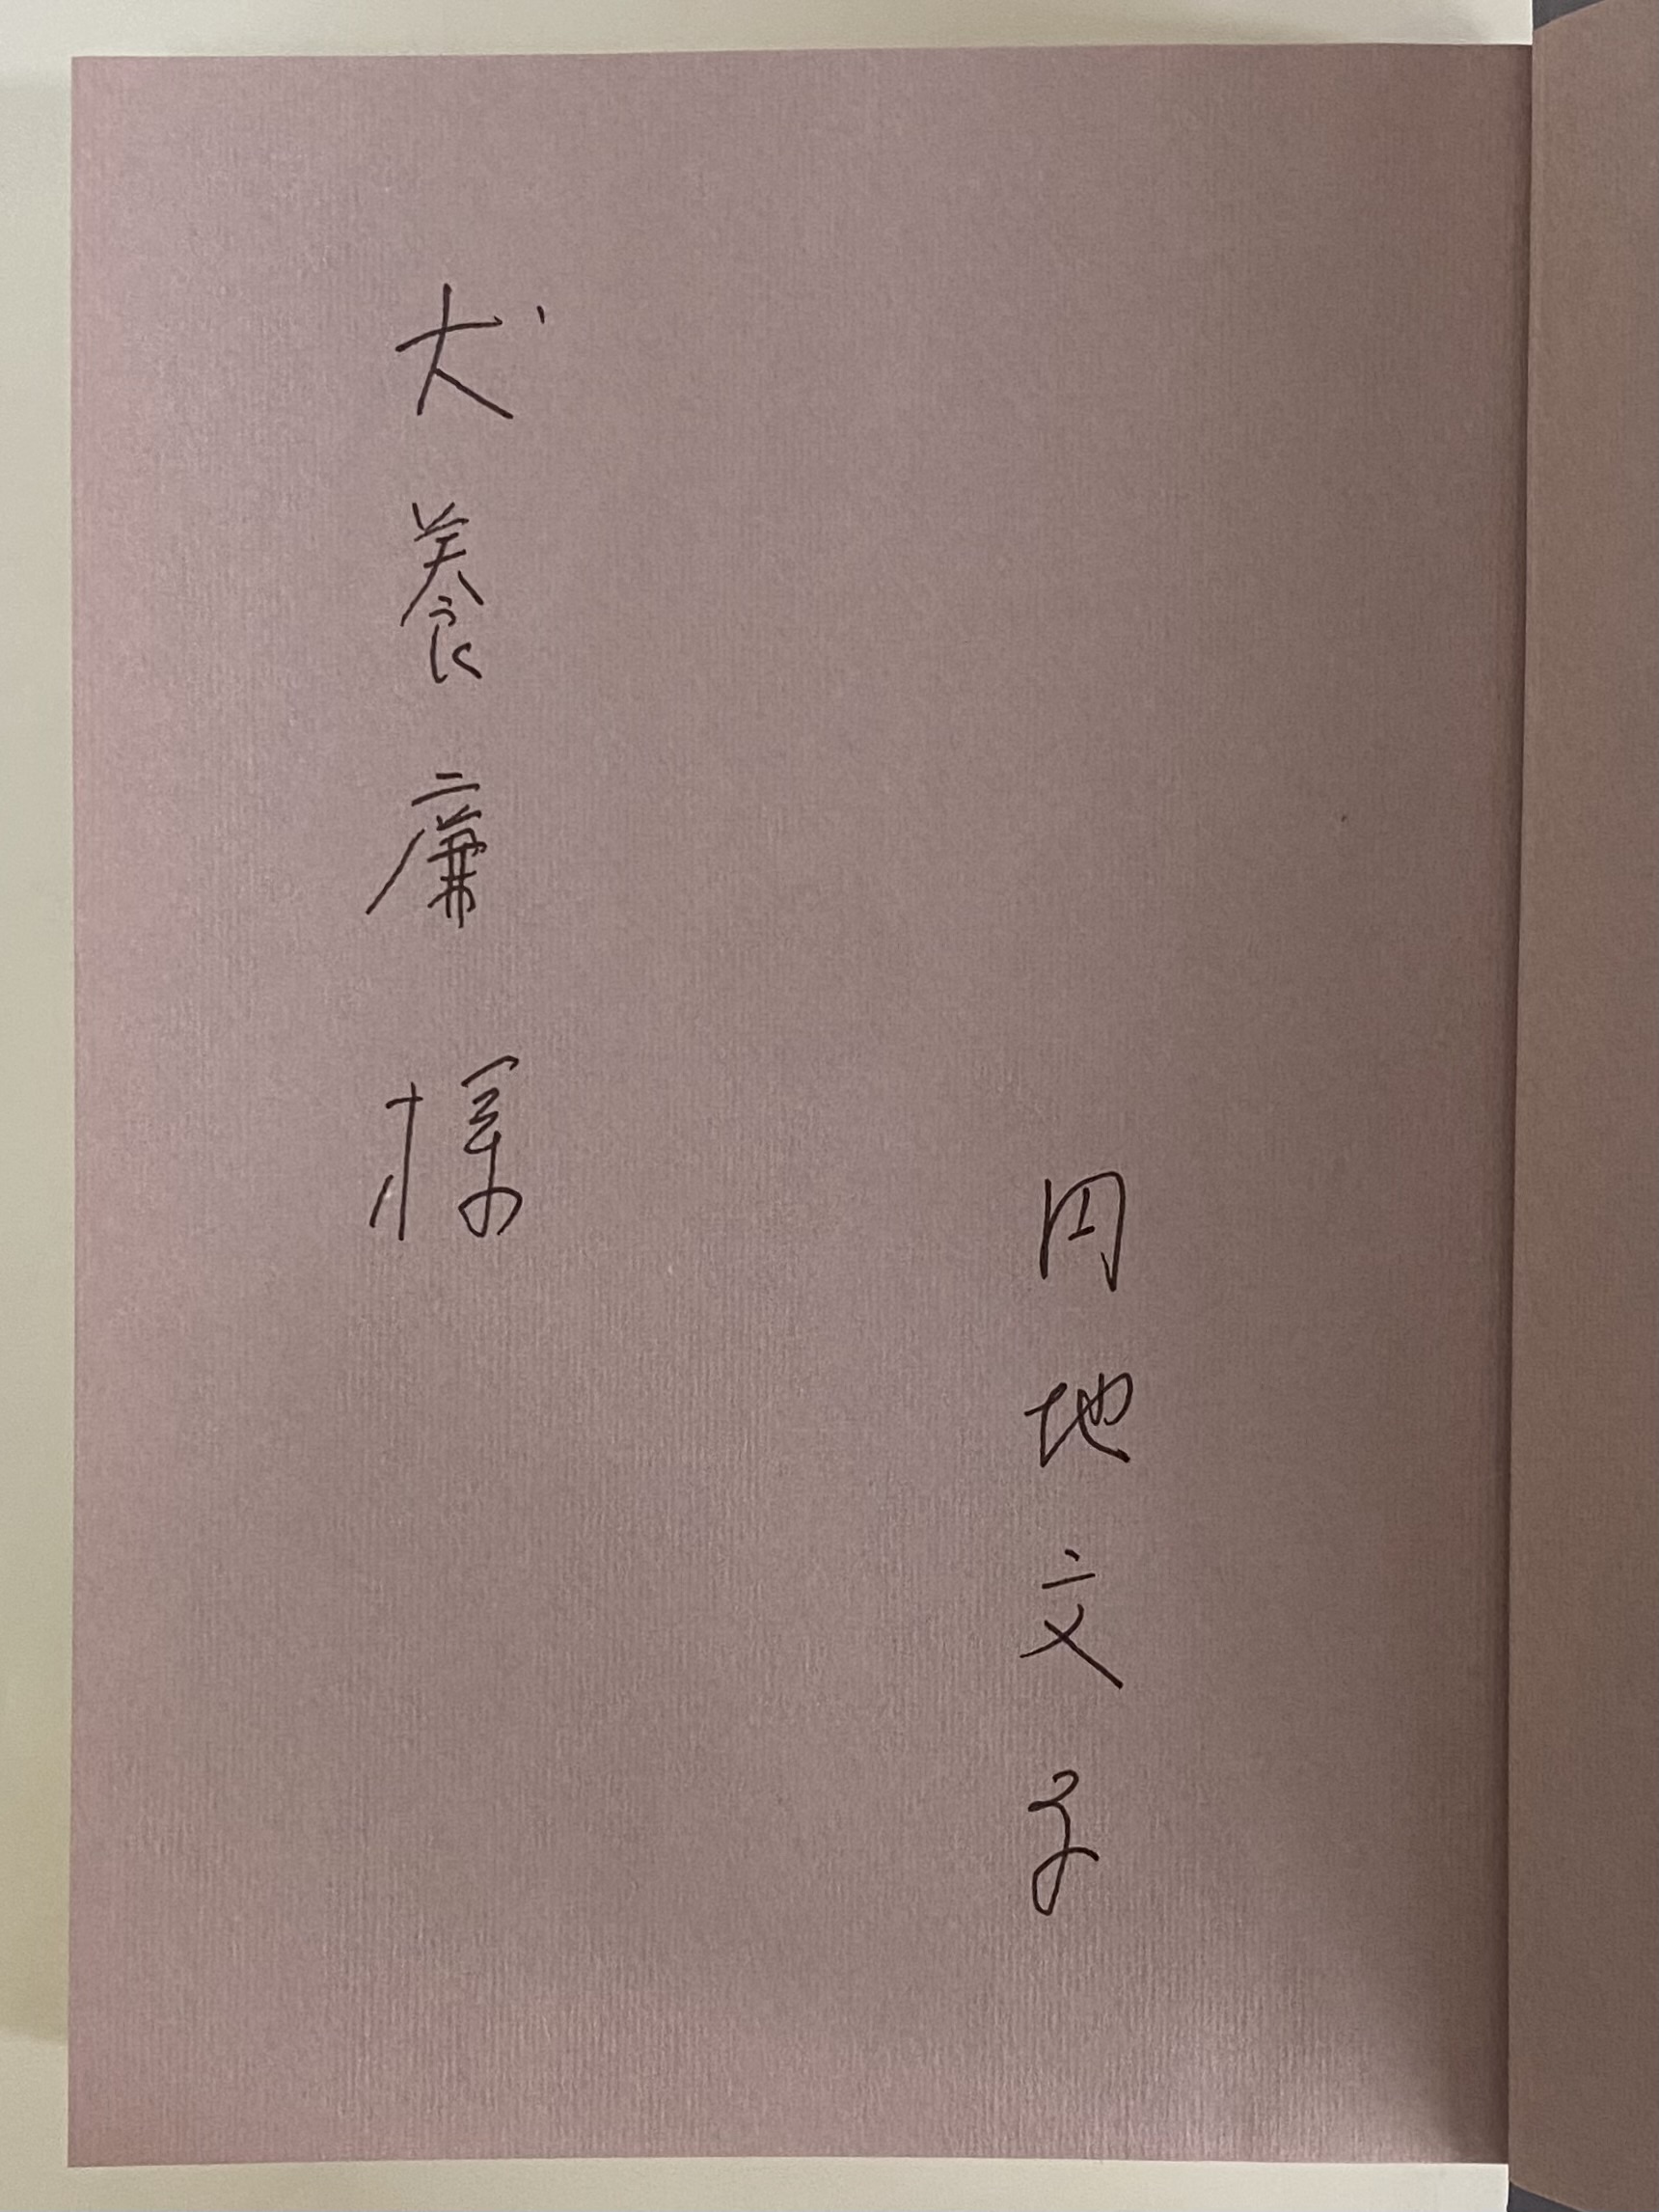 円地文子
犬養廉様